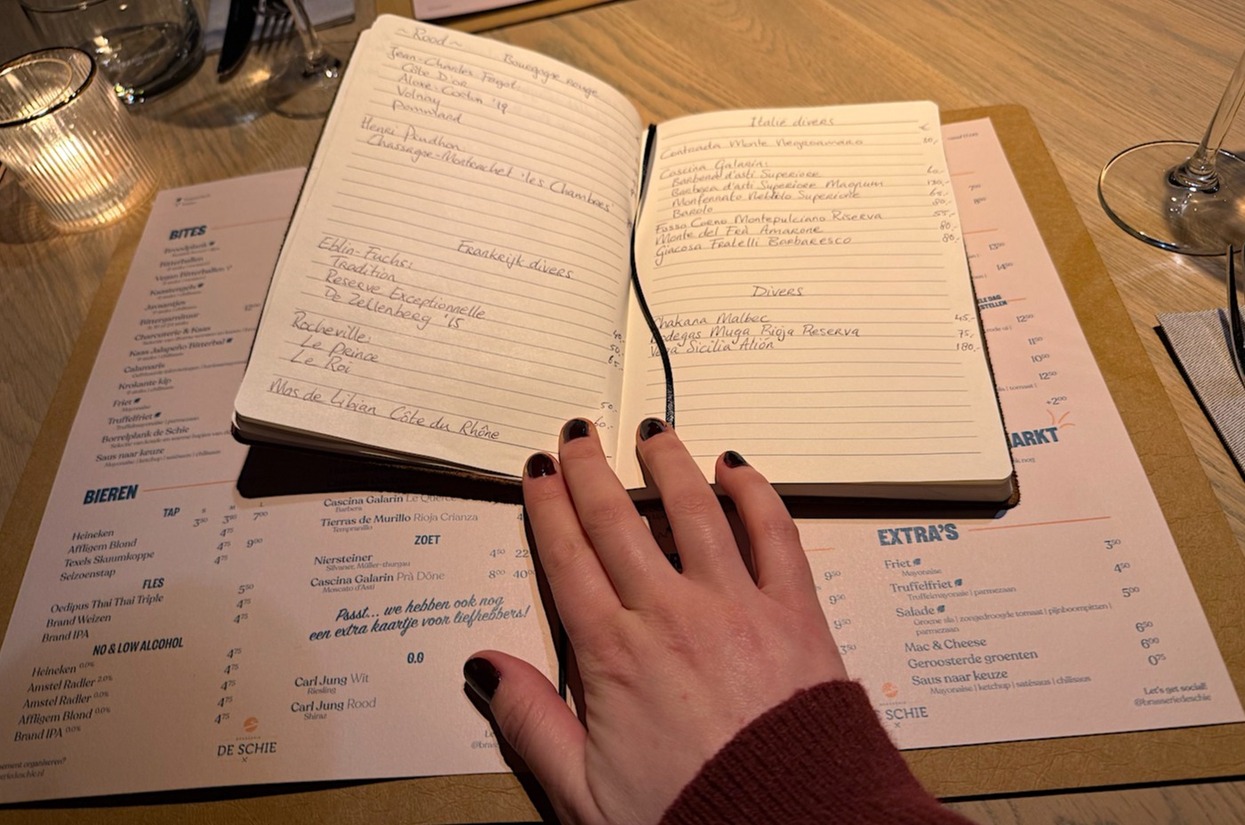 ~Rood~
Bourgogne Rouge
Jean-Charles Fagot:
Côte D'or
Aloxe-Corton '19
Volnay
Pommard
Henri Prudhon:
Chassagne-Montrachet 'les Chambres'
Frankrijk divers
Eblin-Fuchs:
Tradition
Reserve Exceptionnelle
De Zellenberg '15
Rocheville:
Le Prince
Le Roi
50,-
Mas de Libian Côte du Rhône
Italië divers
€
Contrada Monte Negroamaro
Cascina Galarin:
Barbera d'asti Superiore 60,-
Barbera d'asti Superiore Magnum
Monferrato Nebbio Superiore
Barolo 80,-
Fosso Corno Montepulciano Riserva 55,-
Monte del Frà Amarone 80,-
Giacosa Fratelli Barbaresco 80,-
Divers
Chakana Malbec 45,-
Bodegas Muga Rioja Reserva 75,-
Vega Sicilia Alión 180,-
BITES
Borrelplank
Bitterballen
Vegan Bitterballen
Kaastengels
Bittergarnituur
Charcuterie & Kaas
Kaas Jalapeño Bitterbal
Calamaris
Krokante kip
Friet
Mayonaise
Truffelfriet
Borrelplank de Schie
Saus naar keuze
Mayonaise | ketchup | satésaus | chilisaus
BIEREN
TAP
Heineken 3⁵⁰ 3⁹⁰ 7⁰⁰
Affligem Blond 4⁷⁵
Texels Skuumkoppe 4⁷⁵ 9⁰⁰
Seizoenstap 4⁷⁵
FLES
Oedipus Thai Thai Triple 5⁵⁰
Brand Weizen 4⁷⁵
Brand IPA 4⁷⁵
NO & LOW ALCOHOL
Heineken 0.0% 4⁷⁵
Amstel Radler 2.0% 4⁷⁵
Amstel Radler 0.0% 4⁷⁵
Affligem Blond 0.0% 4⁷⁵
Brand IPA 0.0% 4⁷⁵
DE SCHIE
Cascina Galarin Le Querce
Barbera
Tierras de Murillo Rioja Crianza
Tempranillo
ZOET
Niersteiner 4⁹⁰ 22
Silvaner, Müller-thurgau
Cascina Galarin Prà Dône 8⁰⁰ 40⁰
Moscato d'Asti
Pssst... we hebben ook nog
een extra kaartje voor liefhebbers!
0.0
Carl Jung Wit
Riesling
Carl Jung Rood
Shiraz
13⁵⁰
14⁵⁰
12⁵⁰
11⁵⁰
10⁵⁰
12⁵⁰
+2⁰⁰
ARKT
9⁵⁰
9⁵⁰
9⁵⁰
3⁵⁰
EXTRA'S
Friet 3⁵⁰
Mayonaise
Truffelfriet 4⁵⁰
Truffelmayonaise | parmezaan
Salade 5⁰⁰
Groene sla | zongedroogde tomaat | pijnboompitten |
parmezaan
Mac & Cheese 6⁵⁰
Geroosterde groenten 6⁰⁰
Saus naar keuze 0⁷⁵
Mayonaise | ketchup | satésaus | chilisaus
SCHIE
Let's get social!
@brasseriedeschie